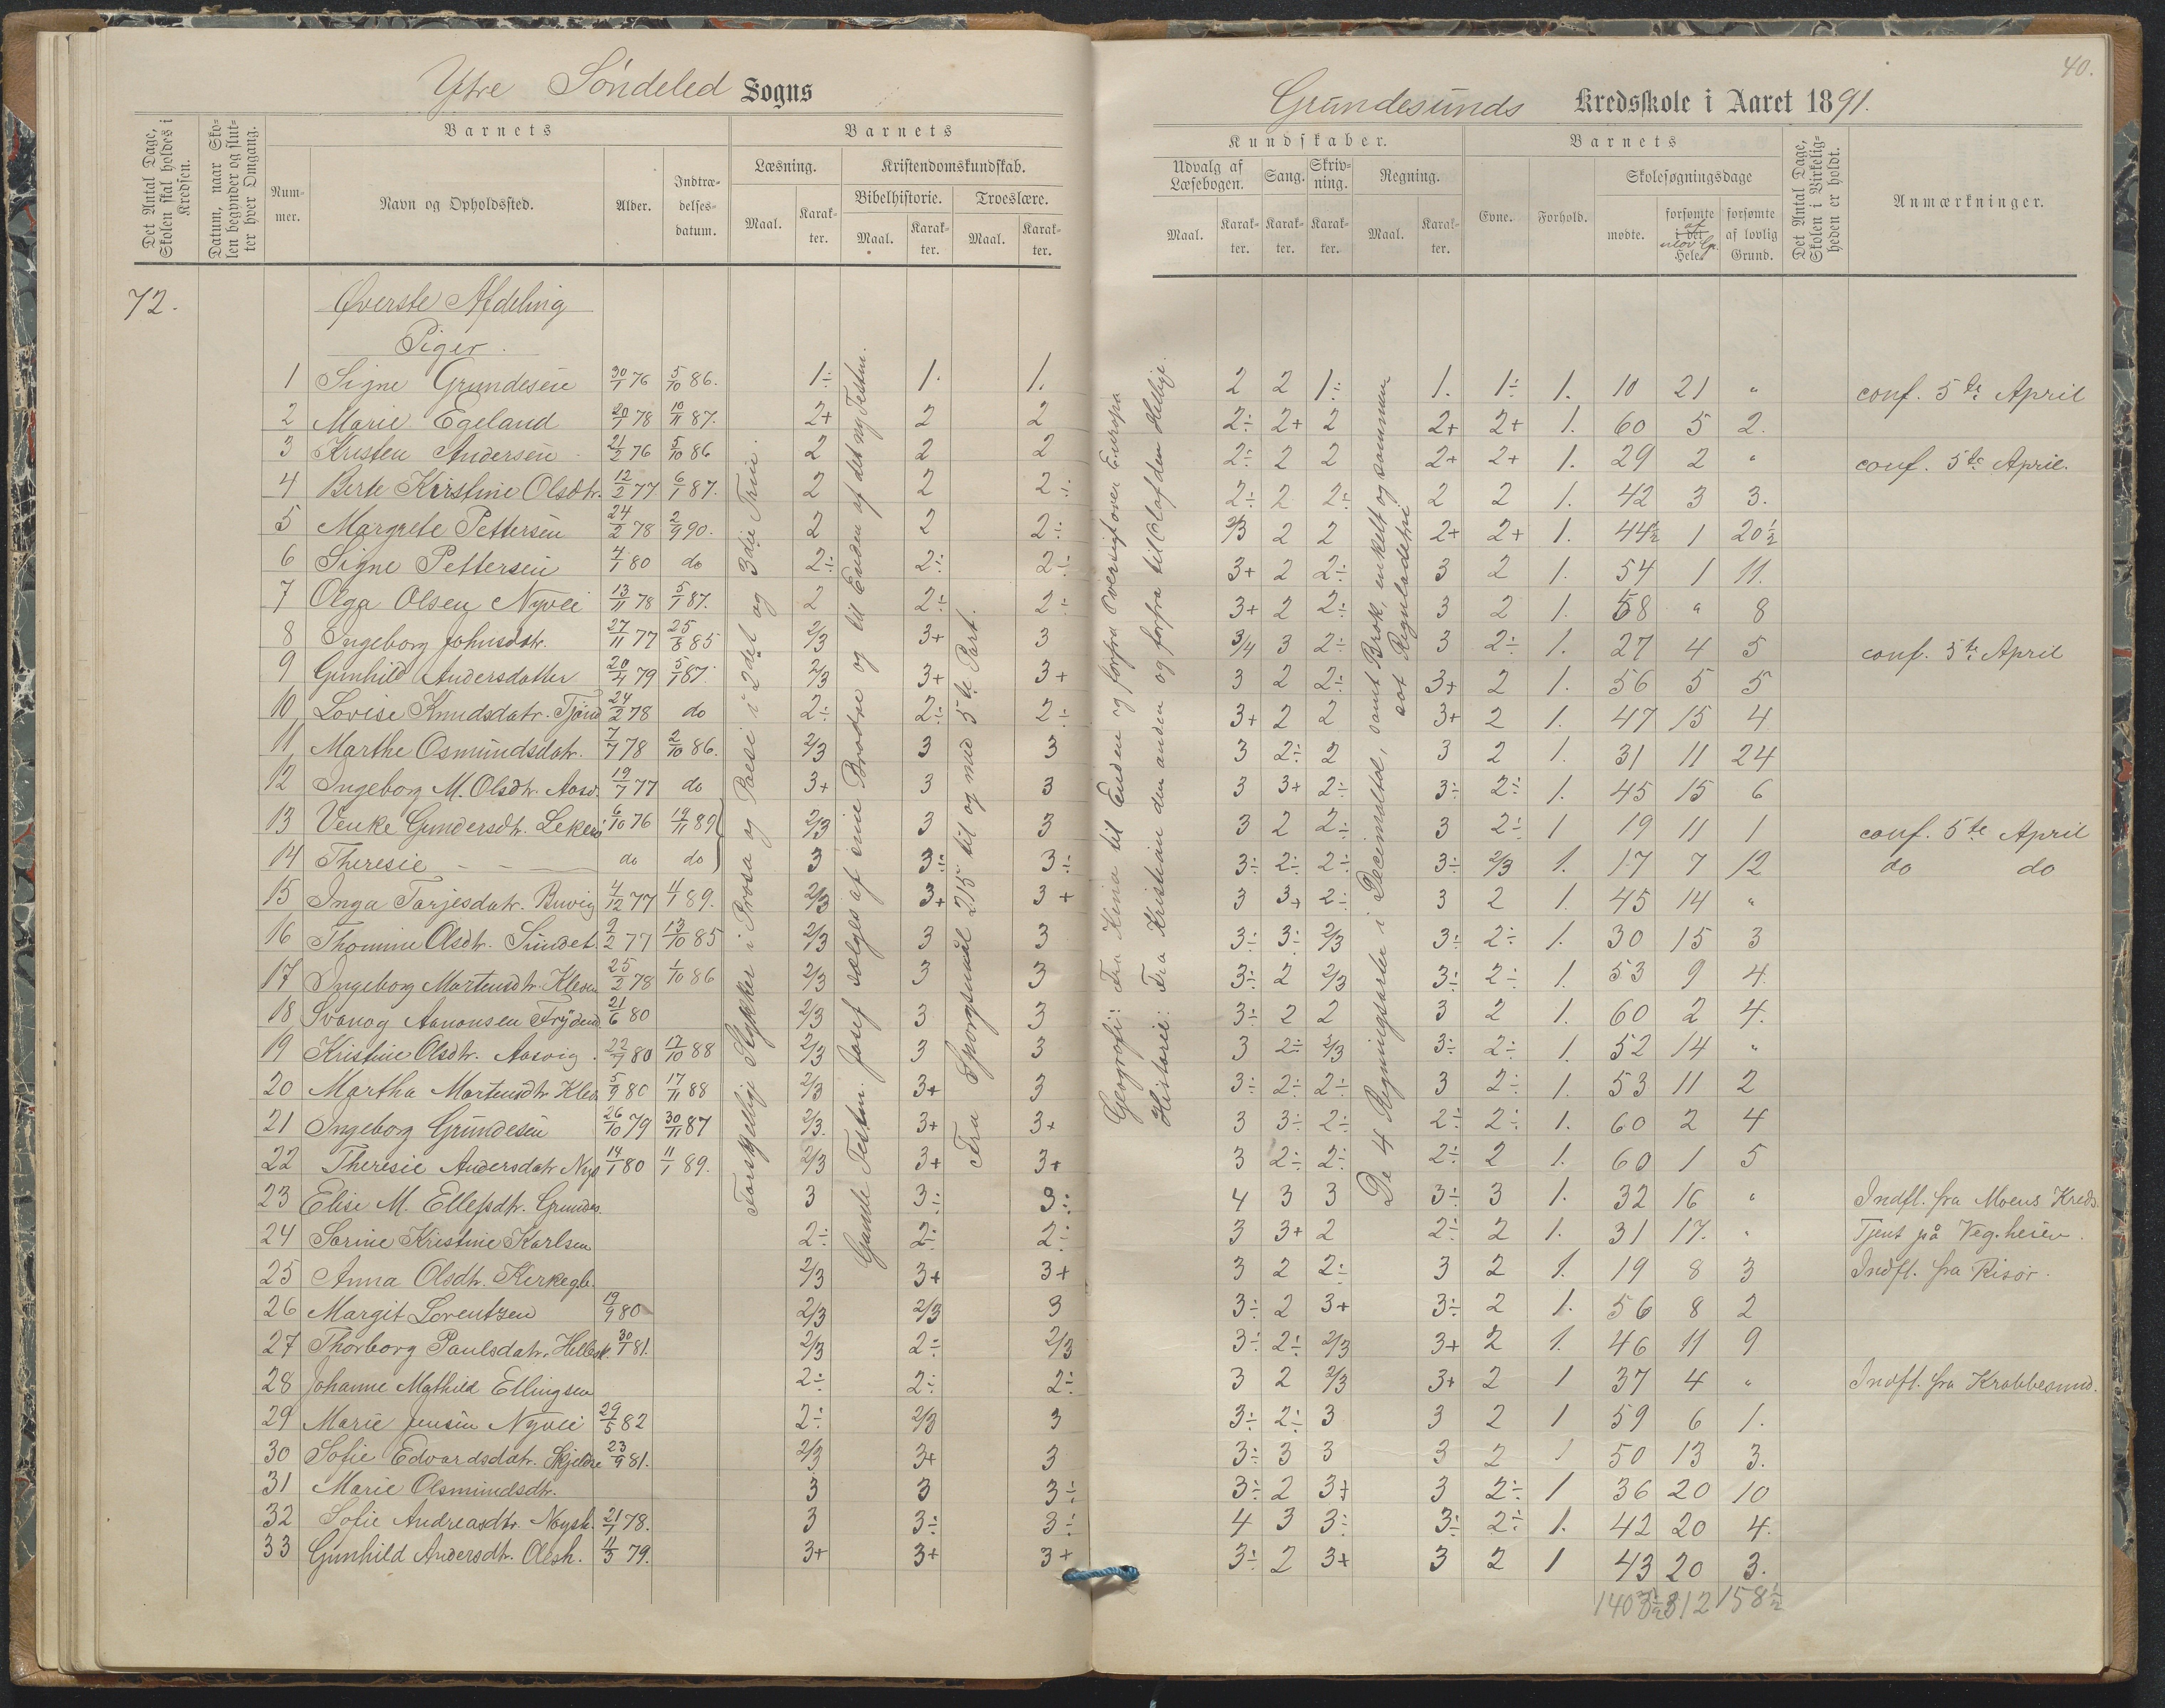 40.
Ytre Söndeled Sogns
Grundesunds Kredsskole i Aaret 1891.
Det Antal Dage, Skolen skal holdes i Kredsen.
Datum, naar Skolen begynder og slutter hver Omgang.
Barnets
Barnets
Nummer.
Navn og Opholdssted.
Alder.
Indtrædelsesdatum.
Læsning.
Kristendomskundskab.
Bibelhistorie.
Troeslære.
Maal.
Karakter.
Maal.
Karakter.
Maal.
Karakter.
Kundskaber.
Barnets
Udvalg af Læsebogen.
Sang.
Skrivning.
Regning.
Evne.
Forhold.
Skolesøgningsdage
Maal.
Karakter.
Karakter.
Karakter.
Maal.
Karakter.
mødte.
forsømte i det Hele.
af ulov. Gr.
forsømte af lovlig Grund.
Det Antal Dage, Skolen i Virkeligheden er holdt.
Anmærkninger.
72.
Øverste Afdeling
Piger.
Forskjellige Stykker i Prosa og Poesi i 2det og 3die Trin.
Gamle Testm. Josef sælges af sine Brødre og til Enden af det ny Testm.
Fra Spørgsmål 215 til og med 5te Part.
Geografi: Fra Kina til Enden og forfra Oversigt over Europa
Historie: Fra Kristian den anden og forfra til Olaf den Hellige.
De 4 Regningsarter i Decimaltal, samt Brøk, enkelt og sammensat Reguladetri
1 Signe Grundesen 30/1 76 5/10 86. 1÷ 1. 1. 2 2 1÷ 1. 1÷ 1. 10 21 " conf. 5te April
2 Marie Egeland 20/7 78 10/11 87. 2+ 2 2 2÷ 2+ 2 2+ 2+ 1. 60 5 2.
3 Kristen Andersen 21/2 76 5/10 86 2 2 2 2÷ 2 2 2+ 2+ 1. 29 2 " conf. 5te April.
4 Berte Kirstine Olsdtr. 12/2 77 6/1 87. 2 2 2÷ 2÷ 2 2÷ 2 2 1. 42 3 3.
5 Margrete Pettersen 24/2 78 2/9 90. 2 2 2÷ 2/3 2 2 2+ 2+ 1. 44½ 1 20½
6 Signe Pettersen 4/1 80 do 2÷ 2÷ 2÷ 3+ 2 2÷ 3 2 1. 54 1 11.
7 Olga Olsen Nyvei 13/11 78 5/1 87. 2 2÷ 2÷ 3+ 2 2÷ 3 2 1. 58 " 8
8 Ingeborg Johnsdtr. 27/11 77 25/8 85 2/3 3+ 3 3/4 3 2÷ 3 2÷ 1. 27 4 5 conf. 5te April
9 Gunhild Andersdatter 20/4 79 5/1 87. 2/3 3+ 3+ 3 2 2÷ 3+ 2 1. 56 5 5
10 Lovise Knudsdatr. 24/2 78 do 2÷ 2÷ 2÷ 3+ 2 2 3+ 2 1. 47 15 4
11 Marthe Osmundsdatr. 7/7 78 2/10 86. 2/3 3 3 3 2÷ 2 3 2 1. 31 11 24
12 Ingeborg M. Olsdtr. Aasv. 19/7 77 do 3+ 3 3 3 3+ 2÷ 3÷ 2÷ 1. 45 15 6
13 Venke Gundersdtr. 6/10 76 14/11 89 2/3 3 3 3 2 2÷ 3 2÷ 1 19 11 1 conf. 5te April
14 Theresie — — do do 3 3÷ 3÷ 3÷ 2÷ 2÷ 3÷ 2/3 1. 17 7 12 do do
15 Inga Tarjesdatr. Buvig 4/12 77 4/1 89. 2/3 3+ 3+ 3 3+ 2÷ 3 2 1. 45 14 "
16 Thomine Olsdtr. Sundet. 2/2 77 13/10 85 2/3 3 3 3÷ 3÷ 2/3 3÷ 2÷ 1. 30 15 3
17 Ingeborg Martensdtr. Kleven 25/2 78 1/10 86 2/3 3 3 3÷ 2 2/3 3÷ 2÷ 1. 53 9 4.
18 Svanog Aanonsen 21/6 80 2/3 3 3 3÷ 2 2 3 2 1. 60 2 4.
19 Kristine Olsdtr. Aasvig. 22/7 80 17/10 88 2/3 3 3 3 2÷ 2/3 3÷ 2÷ 1. 52 14 "
20 Martha Martensdtr. Klev. 5/9 80 17/11 88 2/3 3+ 3 3÷ 2÷ 2÷ 3 2÷ 1. 53 11 2
21 Ingeborg Grundesen 26/10 79 30/11 87 2/3. 3+ 3+ 3 3÷ 2÷ 2÷ 2÷ 1. 60 2 4
22 Theresie Andersdatr. 14/1 80 11/1 89. 2/3 3+ 3+ 3 2÷ 2÷ 2÷ 2 1. 60 1 5
23 Elise M. Ellefsdtr. Grundes. 3 3÷ 3÷ 4 3 3 3÷ 3 1. 32 16 " Indfl. fra Moens Kreds.
24 Sarine Kristine Karlsen 2÷ 2÷ 2÷ 3 3+ 2 2÷ 2 1. 31 17. " Tjent på Veg.heien.
25 Anna Olsdtr. Kirkegb. 2/3 3+ 3+ 3 2 2÷ 3 2 1. 19 8 3 Indfl. fra Risör.
26 Margit Lorentzen 19/9 80 2/3 2/3 3 3÷ 2 3+ 3÷ 2 1. 56 8 2
27 Thorborg Paulsdatr. Hellesk. 30/1 81. 2/3 2÷ 2/3 3÷ 2÷ 2/3 3+ 2 1. 46 11 9
28 Johanne Mathild Ellingsen 2÷ 2÷ 2÷ 3 2 2/3 3+ 2 1 37 4 " Indfl. fra Krabbesund.
29 Marie Jensen Nyvei 29/5 82 2÷ 2/3 3 3÷ 2÷ 3 3 2 1 59 6 1.
30 Sofie Edvardsdatr. 23/9 81. 2/3 3+ 3 3÷ 3 3 3 2 1 50 13 3.
31 Marie Osmundsdtr. 3 3 3÷ 3÷ 2 3+ 3 2÷ 1 36 20 10
32 Sofie Andreasdtr. 21/1 78. 3 3÷ 3÷ 4 3 3÷ 3÷ 2÷ 1. 42 20 4.
33 Gunhild Andersdtr. 4/3 79. 3+ 3+ 3+ 3÷ 2 3+ 3 2 1 43 20 3.
312 158½